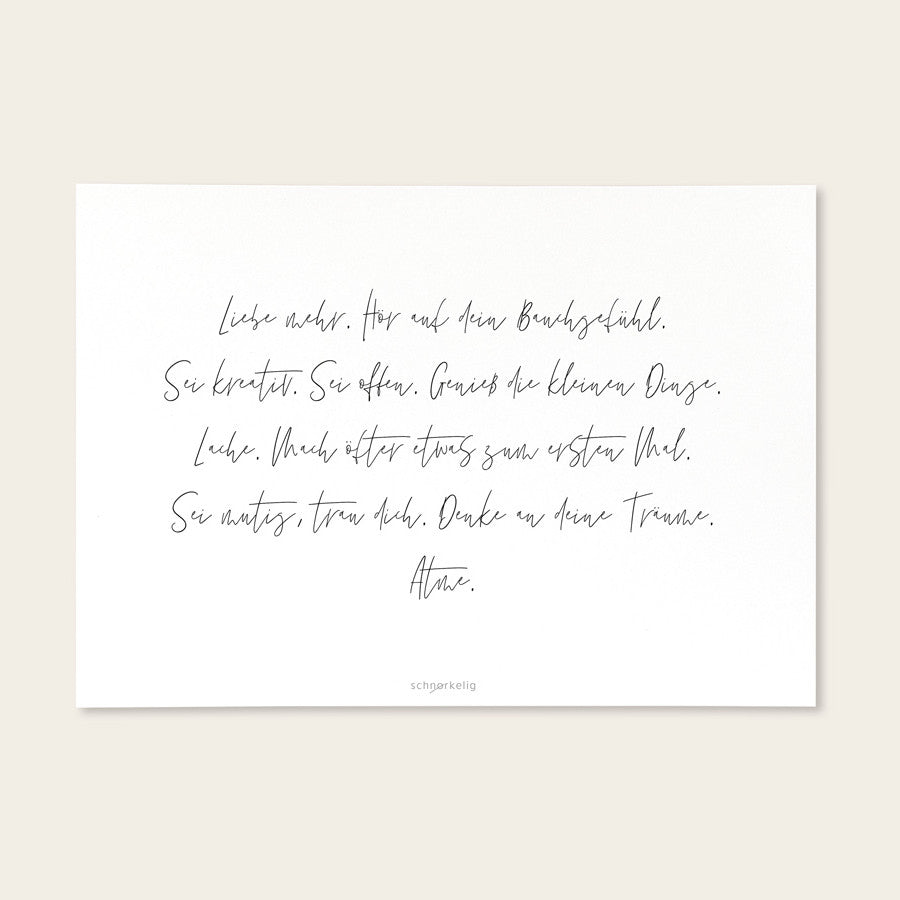 Liebe mehr. Hör auf dein Bauchgefühl.
Sei kreativ. Sei offen. Genieß die kleinen Dinge.
Lache. Mach öfter etwas zum ersten Mal.
Sei mutig, trau dich. Denke an deine Träume.
Atme.
schnørkelig